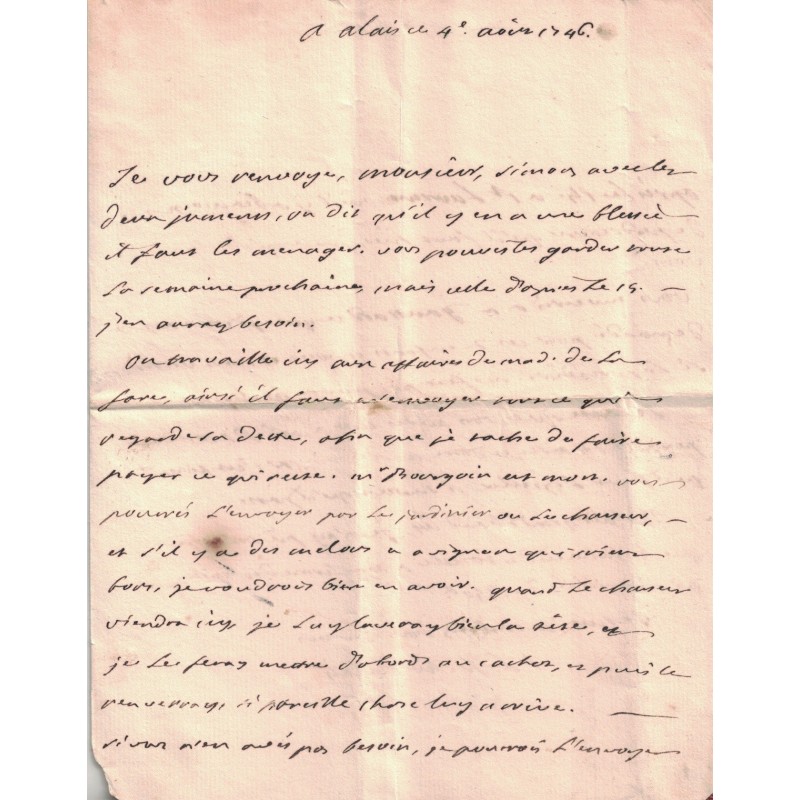 a alais ce 4e. aôut 1746.
Je vous renvoye, monsieur, simon avec les
deux jumens, on dit qu'il y en a une blessée
il faut les menager. vous pouves les garder toute
la semaine prochaine, mais celle d'apres le 15.
j'en auray besoin.
on travaille icy aux affaires de mad. de la
fare, ainsi il faut m'envoyer tout ce qui
regarde sa dette, afin que je tache de faire
payer ce qui reste. mr Bourgoin est mort. vous
pourrés l'envoyer par le jardinier ou le chasseur,
et s'il y a des melons a avignon qui soient
bons, je voudrois bien en avoir. quand le chasseur
viendra icy je luy laveray bien la tête, et
je le feray mettre d'abord au cachot, et puis le
renverray, si pareille chose luy arrive.
si vous n'en avés pas besoin, je pourrois l'envoyer